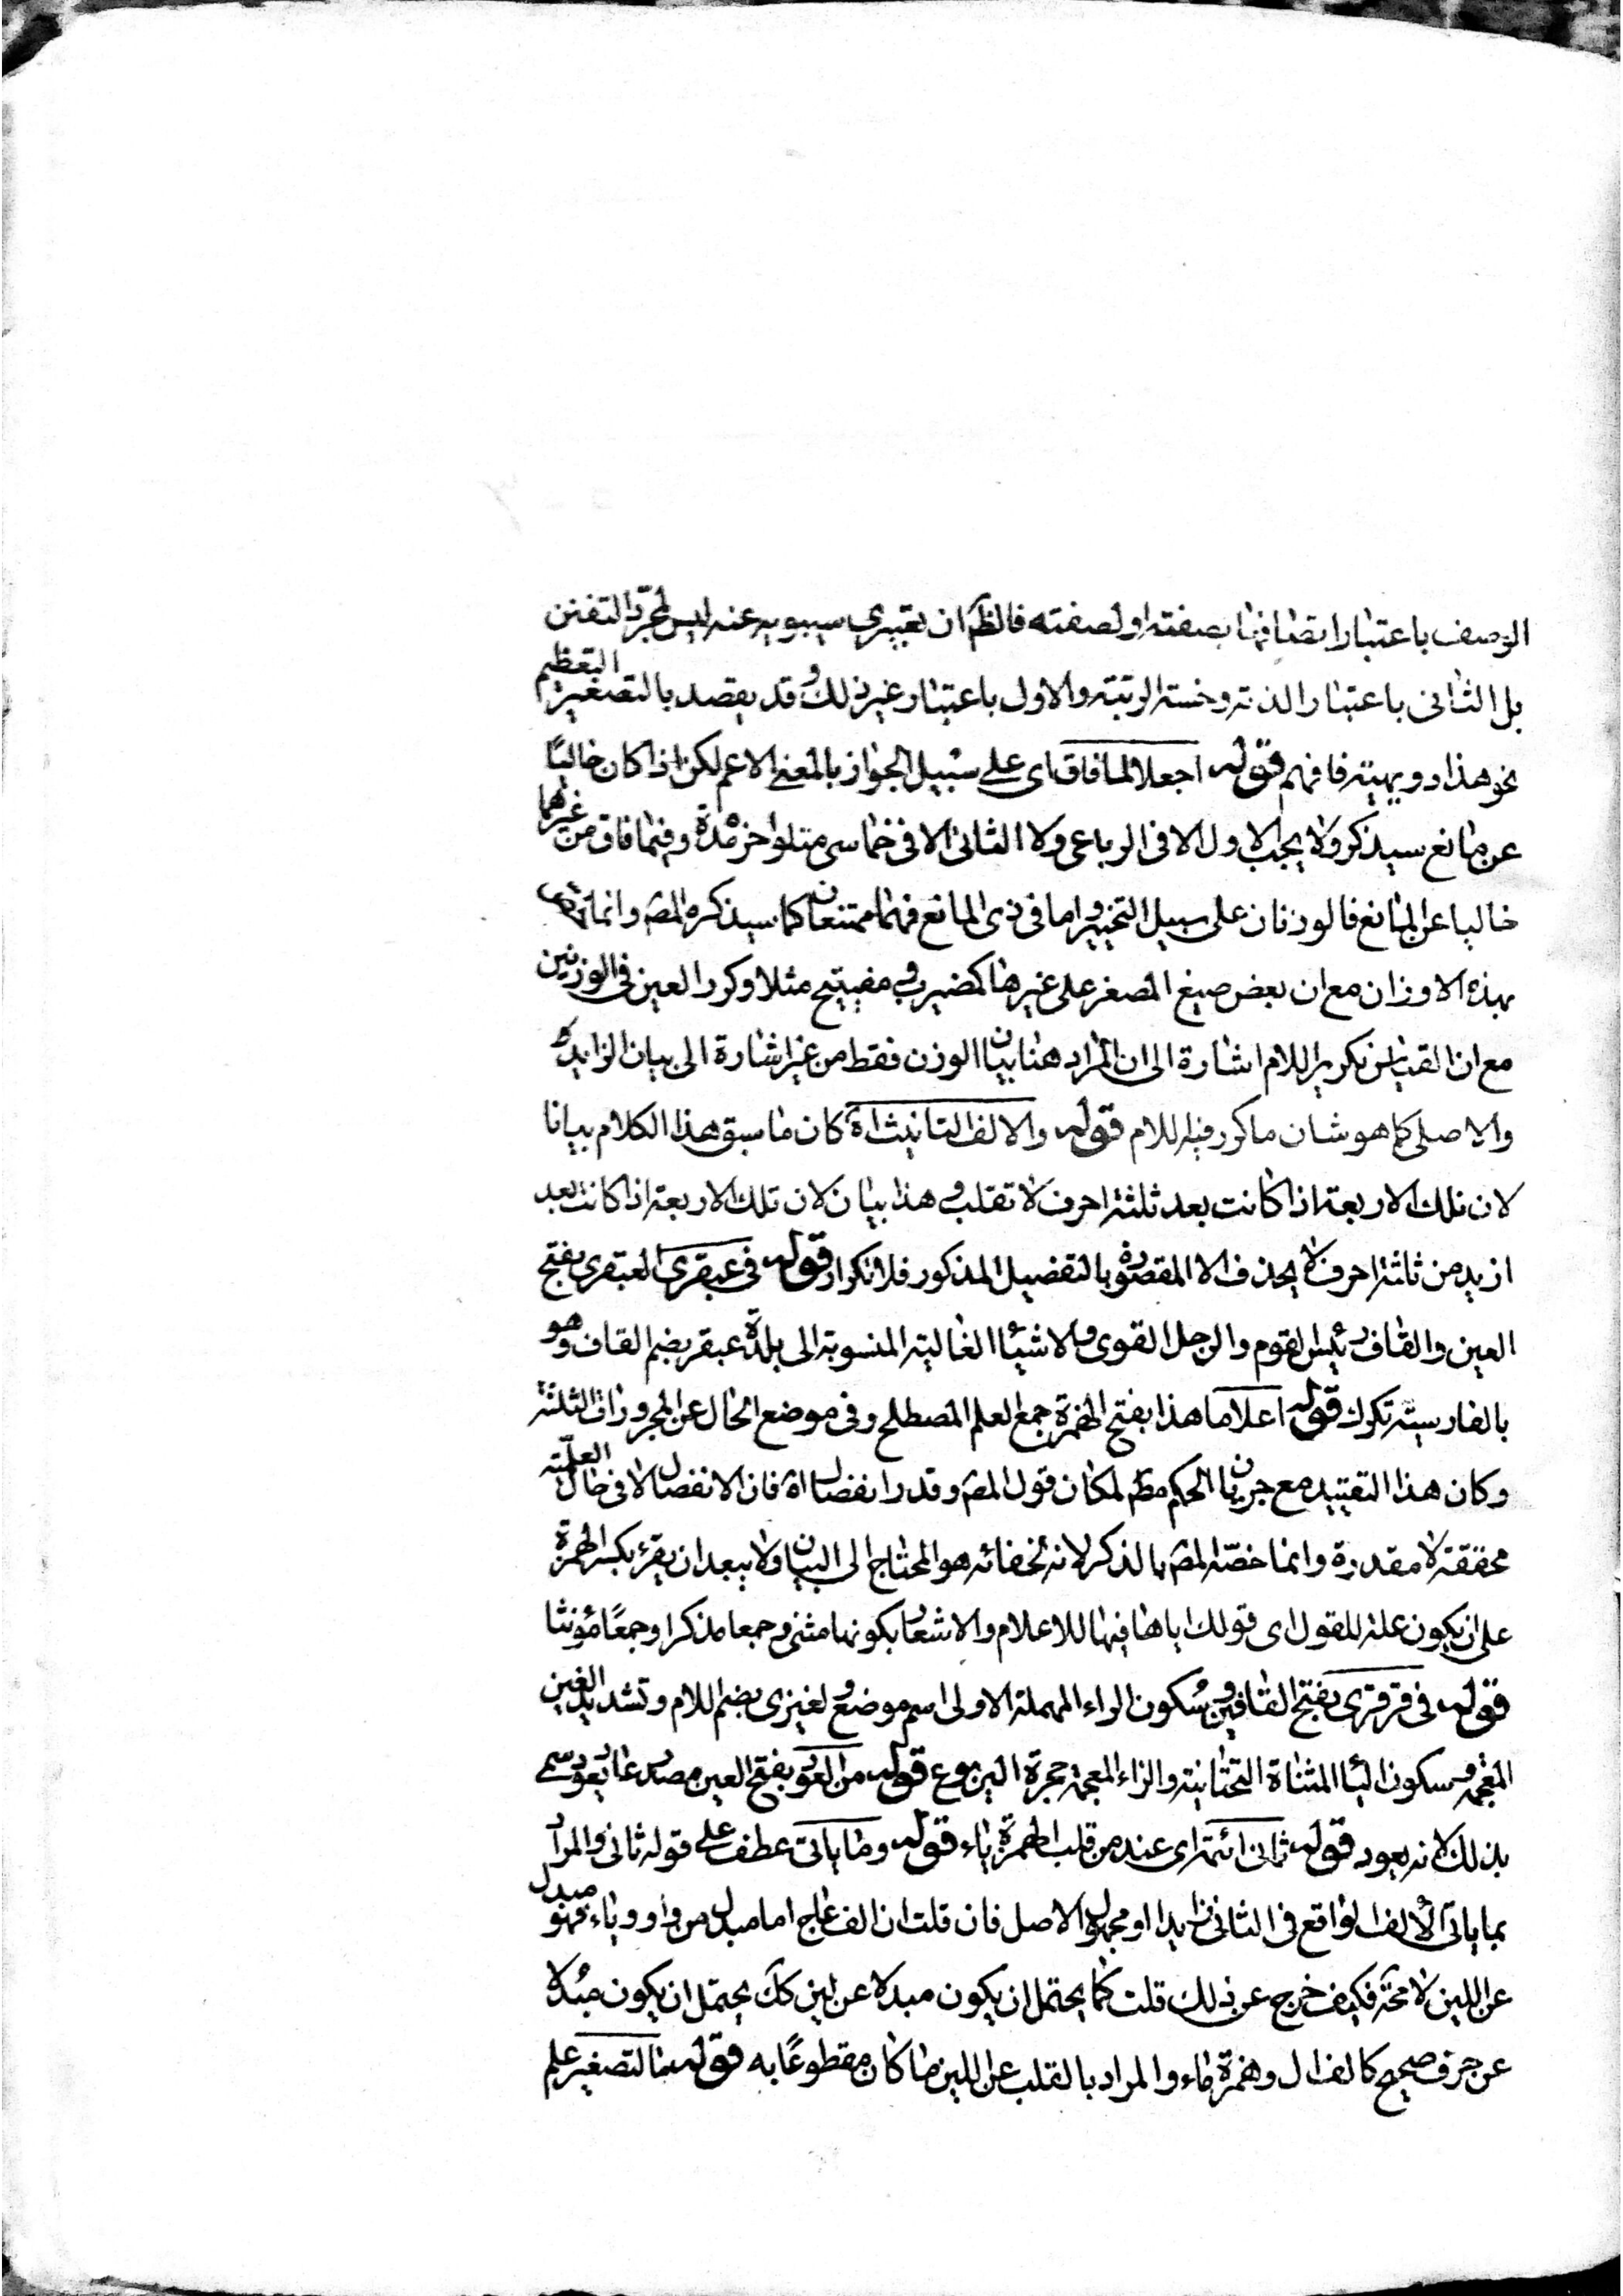 الوصف باعتبار اتصافها بصفته او لصفته فالظم ان تعبيري سيبويه عنه ليس لمجرد التفنن
بل الثانى باعتبار الذته وخسته الرتبته والاول باعتبار غير ذلك وقد يقصد بالتصغير التعظيم
نحو هذا دويهيته فافهم قوله اجعلا لما فاق اى على سبيل الجواز بالمعنى الاعم لكن اذا كان خاليًا
عن مانع سيذكر ولا يجب الاول الا فى الرباعى ولا الثانى الا فى خماسى متلو اخره مدة وفيما فاق من غيرهما
خاليا عن المانع فالوزنان على سبيل التخيير واما فى ذى المانع فهما ممتنعان كما سيذكره المصـ وانما
بهذه الاوزان مع ان بعض صيغ المصغر على غيرها كمضيرب ومفيتيح مثلا وكرر العين فى الوزنين
مع ان القياس تكرير اللام اشارة الى ان المراد هنا بيان الوزن فقط من غير اشارة الى بيان الزايد
والاصلى كما هو شان ما كرر فيه اللام قوله والالف التانيث اه كان ما سبق هذا الكلام بيانا
لان تلك الاربعة اذا كانت بعد ثلثة احرف لا تقلب وهذا بيان لان تلك الاربعة اذا كانت بعد
ازيد من ثلثة احرف لا يحذف الا المقصورة بالتفصيل المذكور فلا تكرار قوله فى عبقرى العبقرى بفتح
العين والقاف رئيس القوم والرجل القوى والاشياء الغالية المنسوبة الى بلدة عبقر بضم القاف وهو
بالفارسية تكرك قوله اعلاما هذا بفتح الهمزة جمع العلم المصطلح وفى موضع الحال عن المجرورات الثلثة
وكان هذا التقييد مع جريان الحكم مطـ لمكان قول المصـ وقدر انفصال اه فان الانفصال لا فى حال العلمية
محققة لا مقدرة وانما خصّه المصـ بالذكر لانه لخفائه هو المحتاج الى البيان ولا يبعد ان يقرء بكسر الهمزة
على ان يكون علة للقول اى قولك اياها فيها للاعلام والاشعار بكونها مثنى وجمعا مذكرا وجمعًا مؤنثا
قوله فى قرقرى بفتح القافين وسكون الراء المهملة الاولى اسم موضع ولغيزى بضم اللام وتشديد الغين
المعجمة وسكون الياء المثناة التحتانية والزاء المعجمة حجرة اليربوع قوله من العود بفتح العين مصدر عاد يعود سمى
بذلك لانه يعود قوله ثانى ائمة اى عند من قلب الهمزة ياء قوله وما ياتى عطف على قوله ثانى والمراد
بما ياتى الالف الواقع فى الثانى زايدا او مجهول الاصل فان قلت ان الف عاج اما مبدل من واو وياء فهو مبدل
عن اللين لا محة فكيف خرج عن ذلك قلت كما يحتمل ان يكون مبدلا عن لين كك يحتمل ان يكون مبدلا
عن حرف صحيح كالف ال وهمزة ماء والمراد بالقلب عن اللين ما كان مقطوعًا به قوله التصغير علم